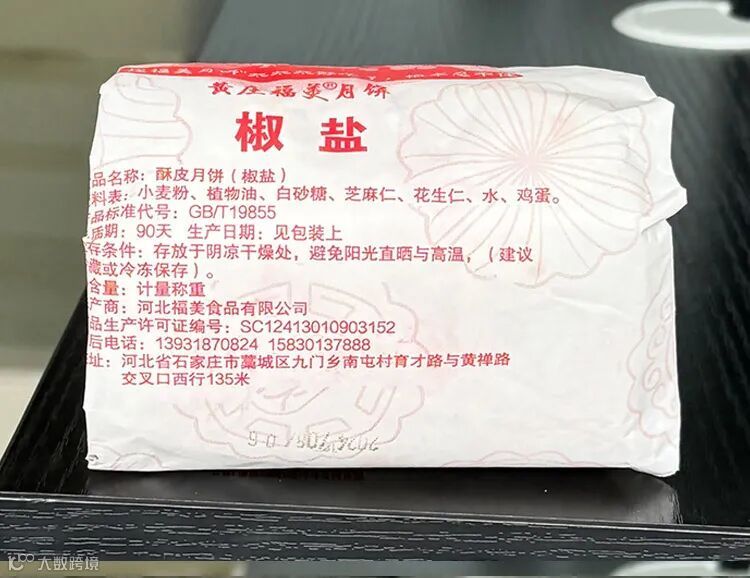 黄庄福美®月饼
椒盐
品名称：酥皮月饼（椒盐）
料表：小麦粉、植物油、白砂糖、芝麻仁、花生仁、水、鸡蛋。
品标准代号：GB/T19855
质期：90天 生产日期：见包装上
存条件：存放于阴凉干燥处，避免阳光直晒与高温，（建议
藏或冷冻保存）。
含量：计量称重
产商：河北福美食品有限公司
品生产许可证编号：SC12413010903152
后电话：13931870824 15830137888
址：河北省石家庄市藁城区九门乡南屯村育才路与黄禅路
交叉口西行135米
大数跨境